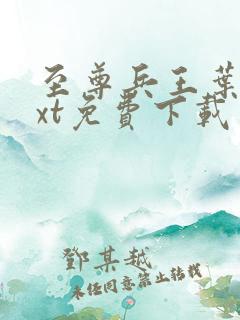 至尊兵王葉
xt免費下載
鄧某越
未任同意禁止转载